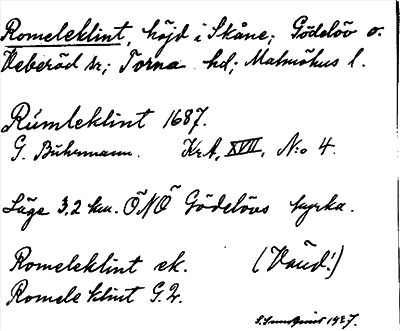 Romeleklint, höjd i Skåne; Gödelöv o.
Veberöd sr; Torna hd; Malmöhus l.
Rúmleklint 1687.
G. Buhrmann. KrA, XVII, N:o 4.
Läge 3,2 km. ÖNÖ Gödelövs kyrka.
Romeleklint ek. (Vänd!)
Romeleklint G.
1927.